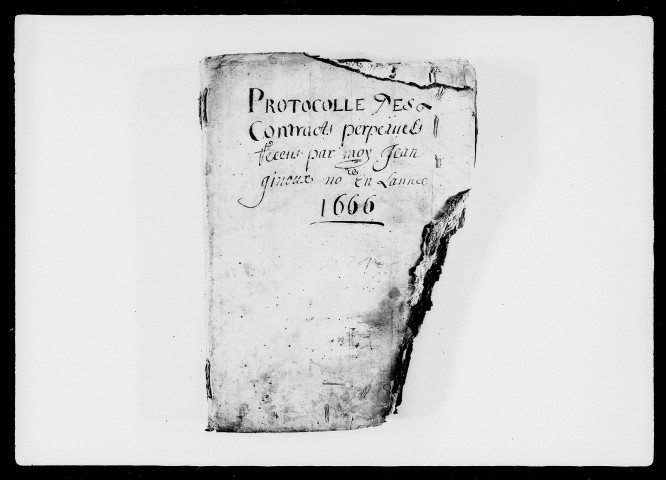 PROTOCOLLE DES
Contracts perpetuels
Receus par moy Jean
giroux no.re En Lannee
1666